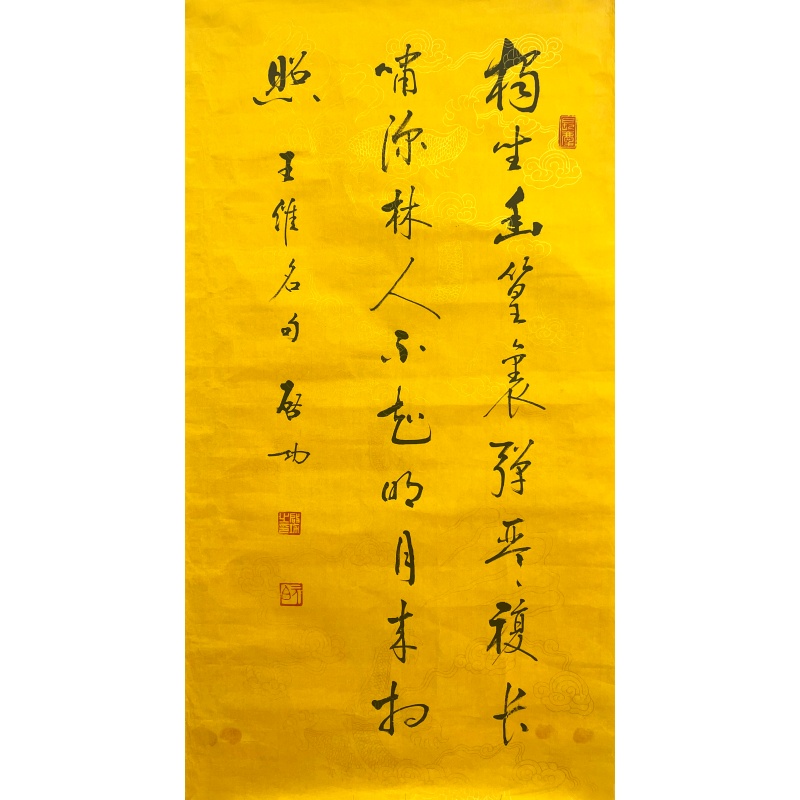 獨坐幽篁裏彈琴復长
嘯深林人不起明月来相
照 王維名句 啓功